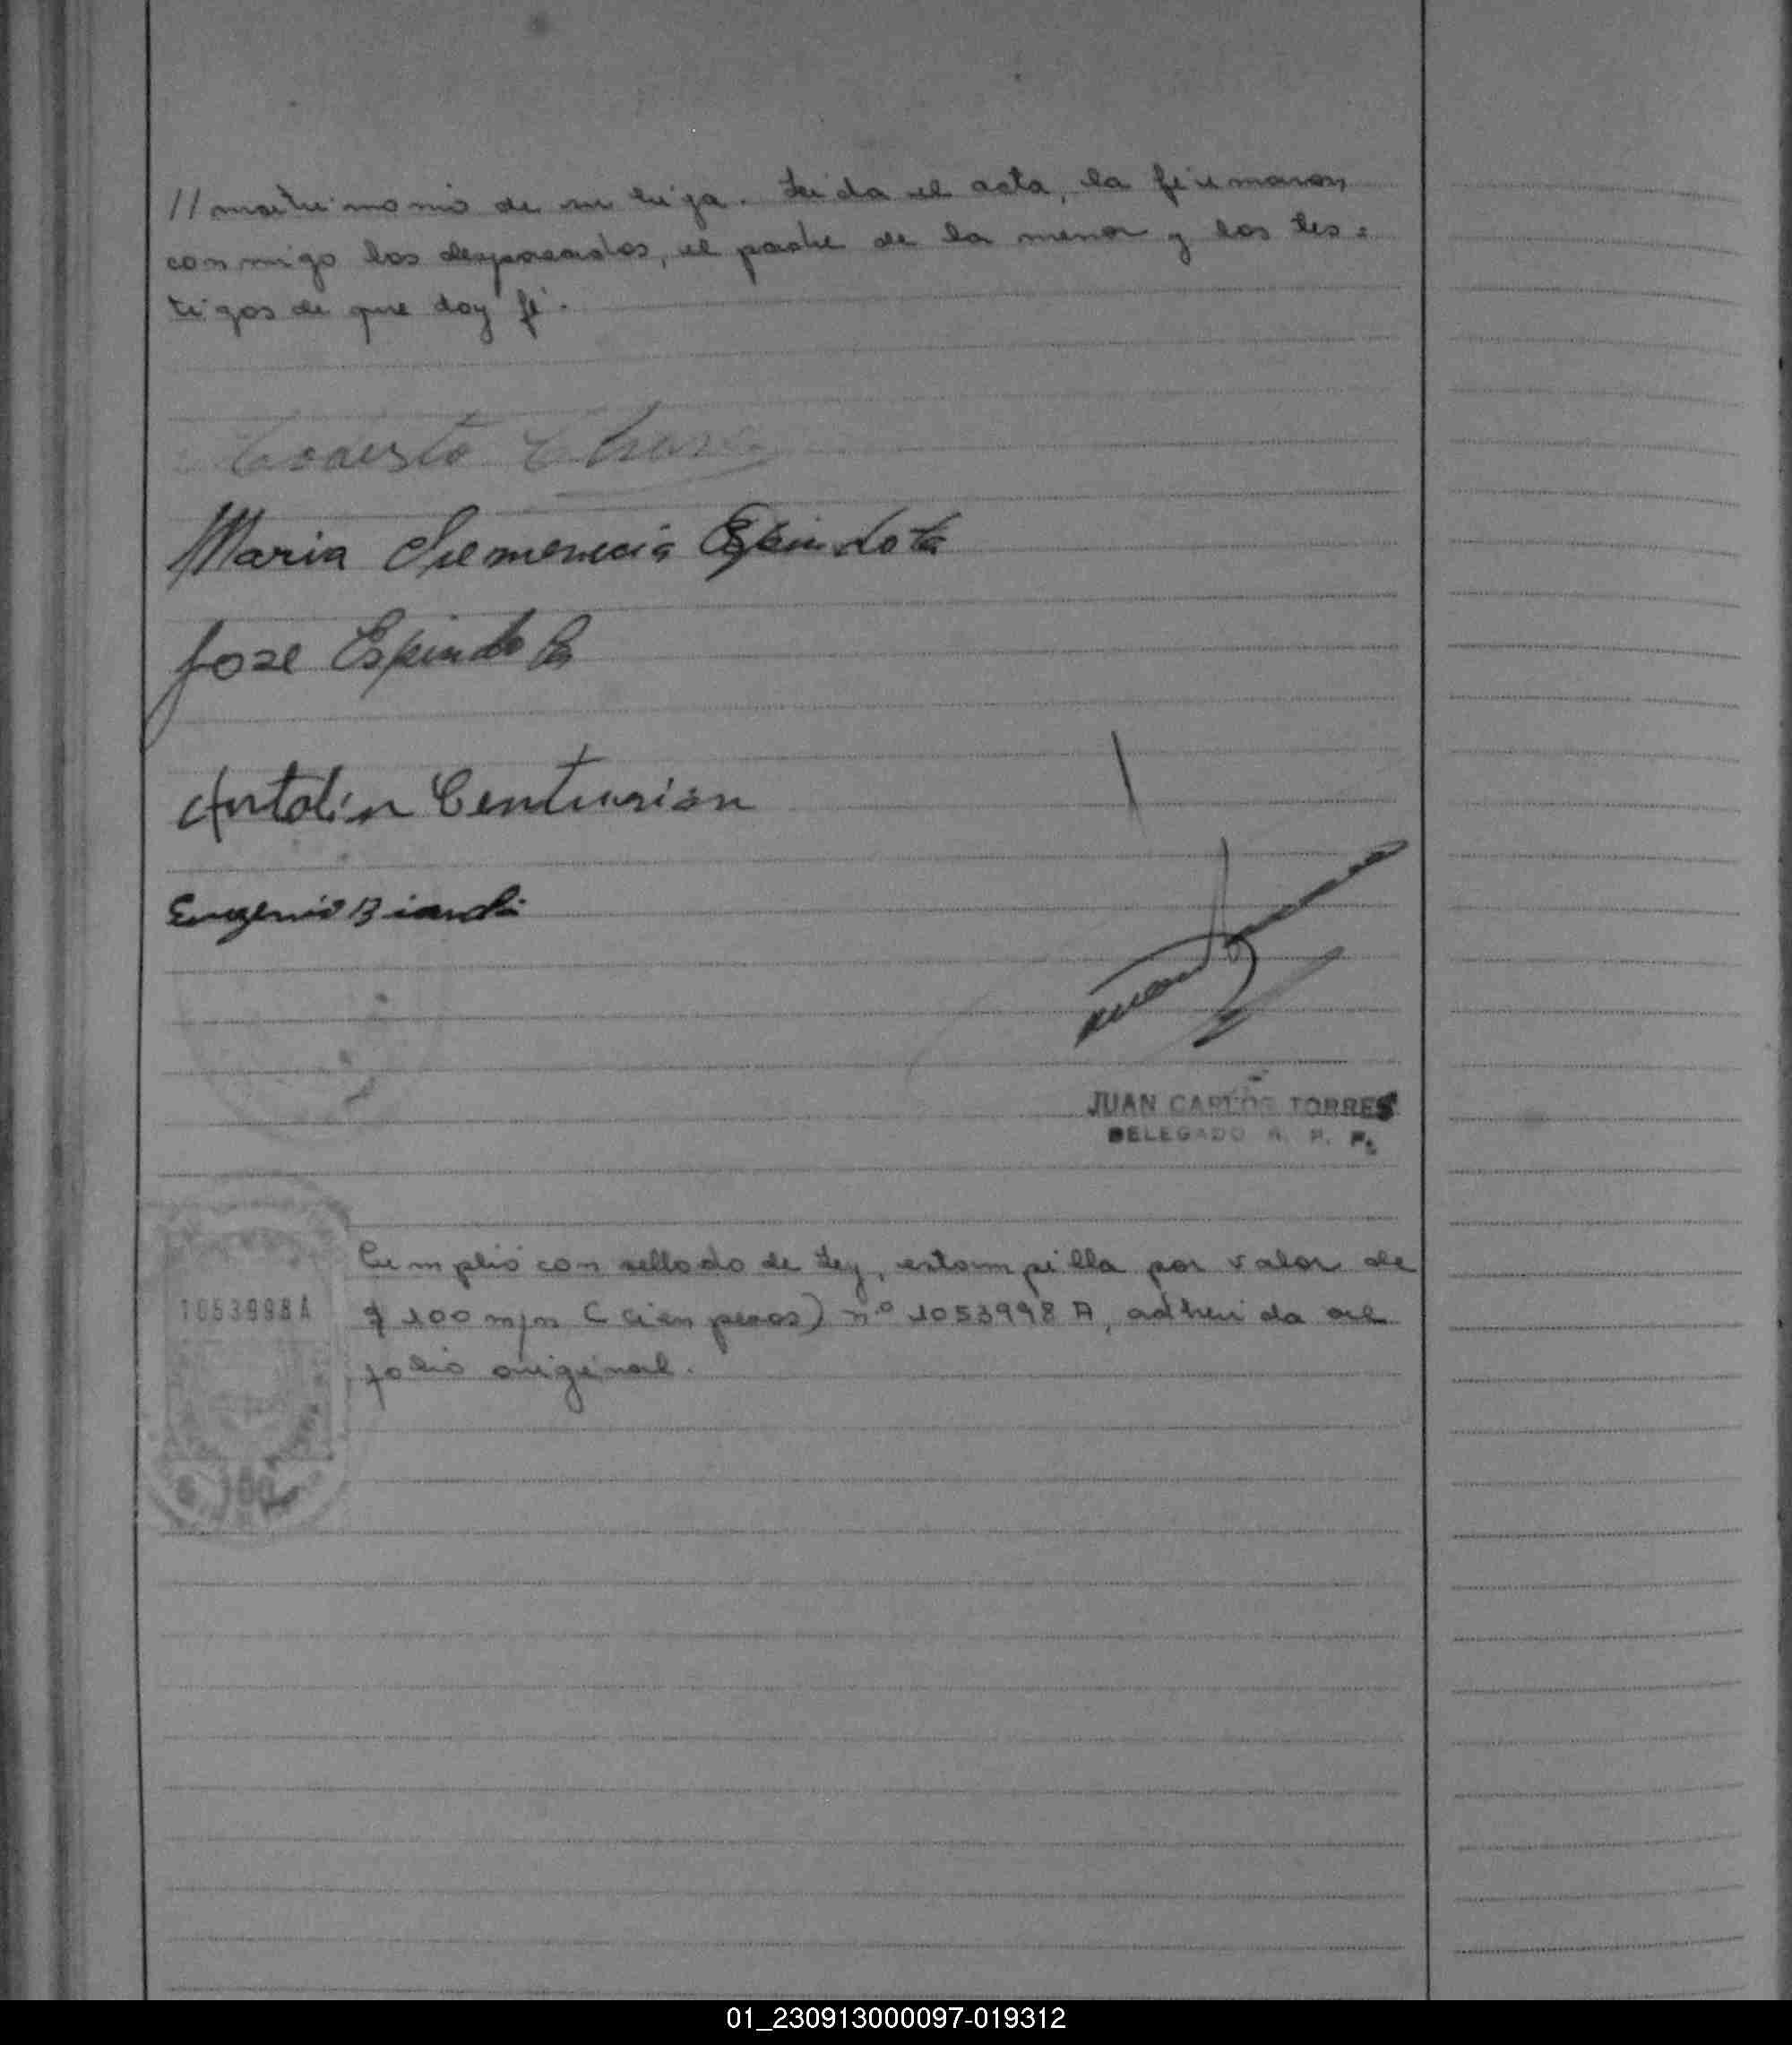 // matrimonio de su hija. Leida el acta, la firmaron
conmigo los desposados, el padre de la menor y los tes=
tigos de que doy fé.
Maria Espindola
Jose Espindola
Antolin Centurion
Eugenio Bianchi
JUAN CARLOS TORRES
DELEGADO R. P. P.
Cumplió con sellado de Ley, estampilla por valor de
$ 100 m/n (cien pesos) nº 1053998 A, adherida al
1053998A
folio original.
$ 100
01_230913000097-019312